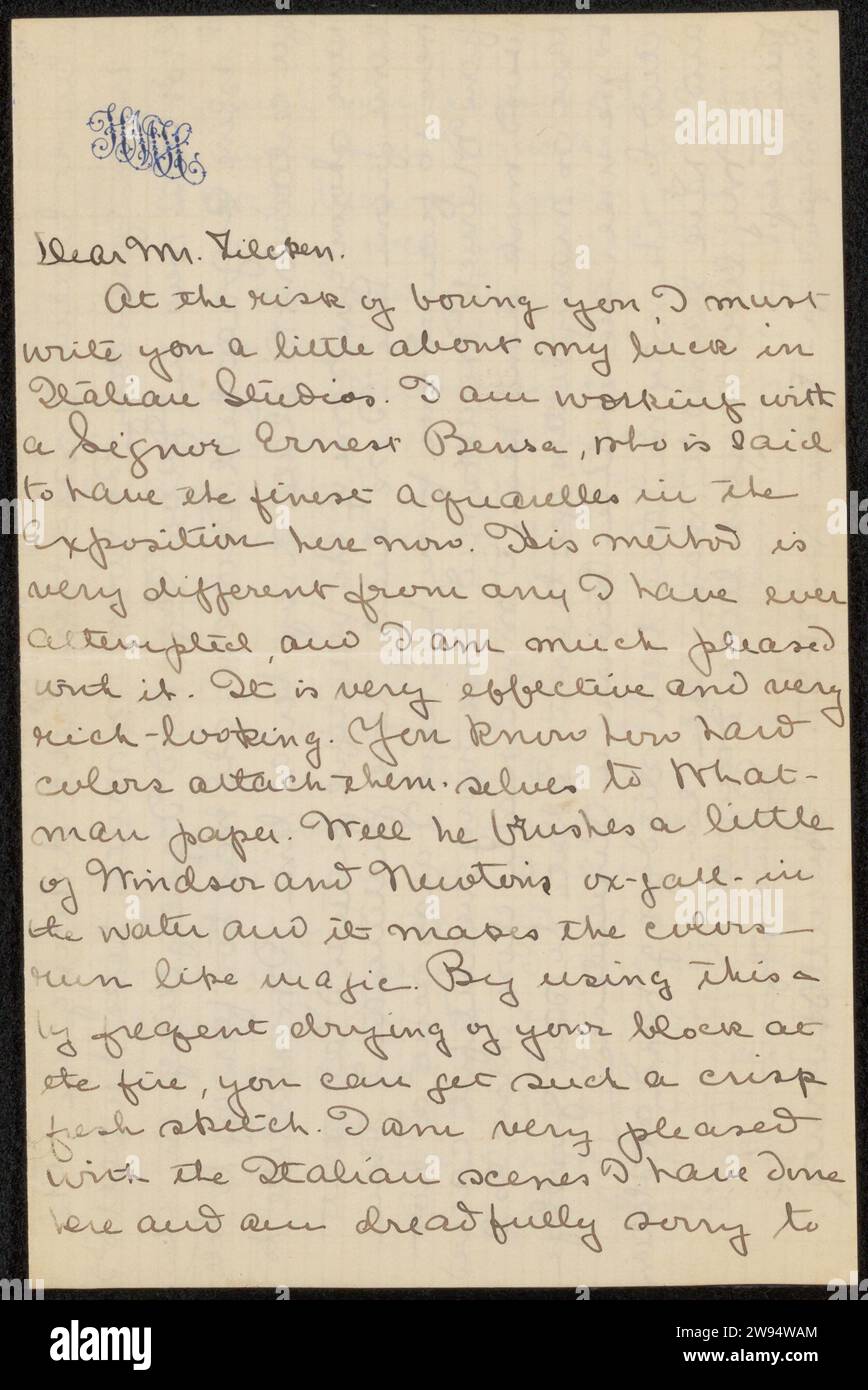 Dear Mr. Zilcken.
At the risk of boring you, I must
write you a little about my luck in
Italian Studios. I am working with
a Signor Ernest Bensa, who is said
to have the finest aquarelles in the
Exposition here now. His method is
very different from any I have ever
attempted, and I am much pleased
with it. It is very effective and very
rich-looking. You know how hard
colors attach them-selves to What-
man paper. Well he brushes a little
of Windsor and Newton's ox-gall- in
the water and it makes the colors
run like magic. By using this &
by frequent drying of your block at
the fire, you can get such a crisp
fresh sketch. I am very pleased
with the Italian scenes I have done
here and am dreadfully sorry to
alamy
Image ID: 2W94WAM
www.alamy.com